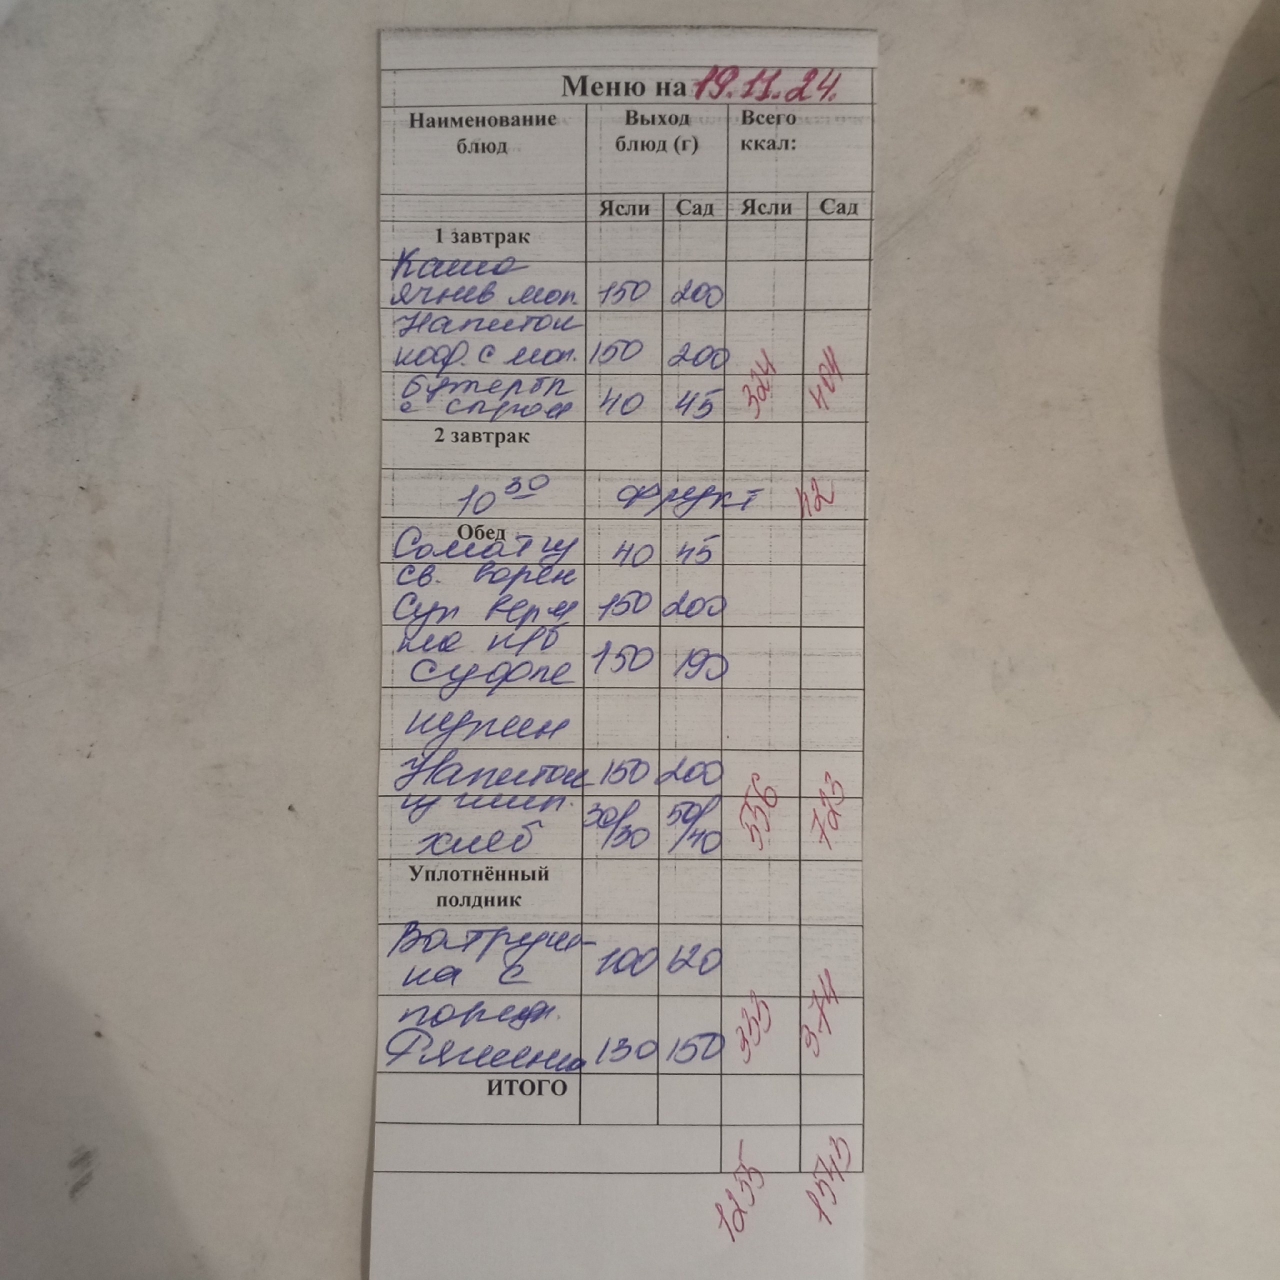 Меню на 19.11.24.
Наименование блюд Выход блюд (г) Всего ккал:
Ясли Сад Ясли Сад
1 завтрак
Каша
ячнев мол. 150 200
Напиток
коф. с мол. 150 200
бутербр
с сыром 40 45 324 404
2 завтрак
10 30 фрукт 42
Обед
Салат из 40 45
св. варен
Суп верм 150 200
на кб
Суфле 150 190
курин
Напиток 150 200
из шип.
хлеб 30/30 50/40 556 723
Уплотнённый
полдник
Ватруш-
ка с 100 120
повидл.
Ряженка 130 150 333 374
ИТОГО
1255 1543